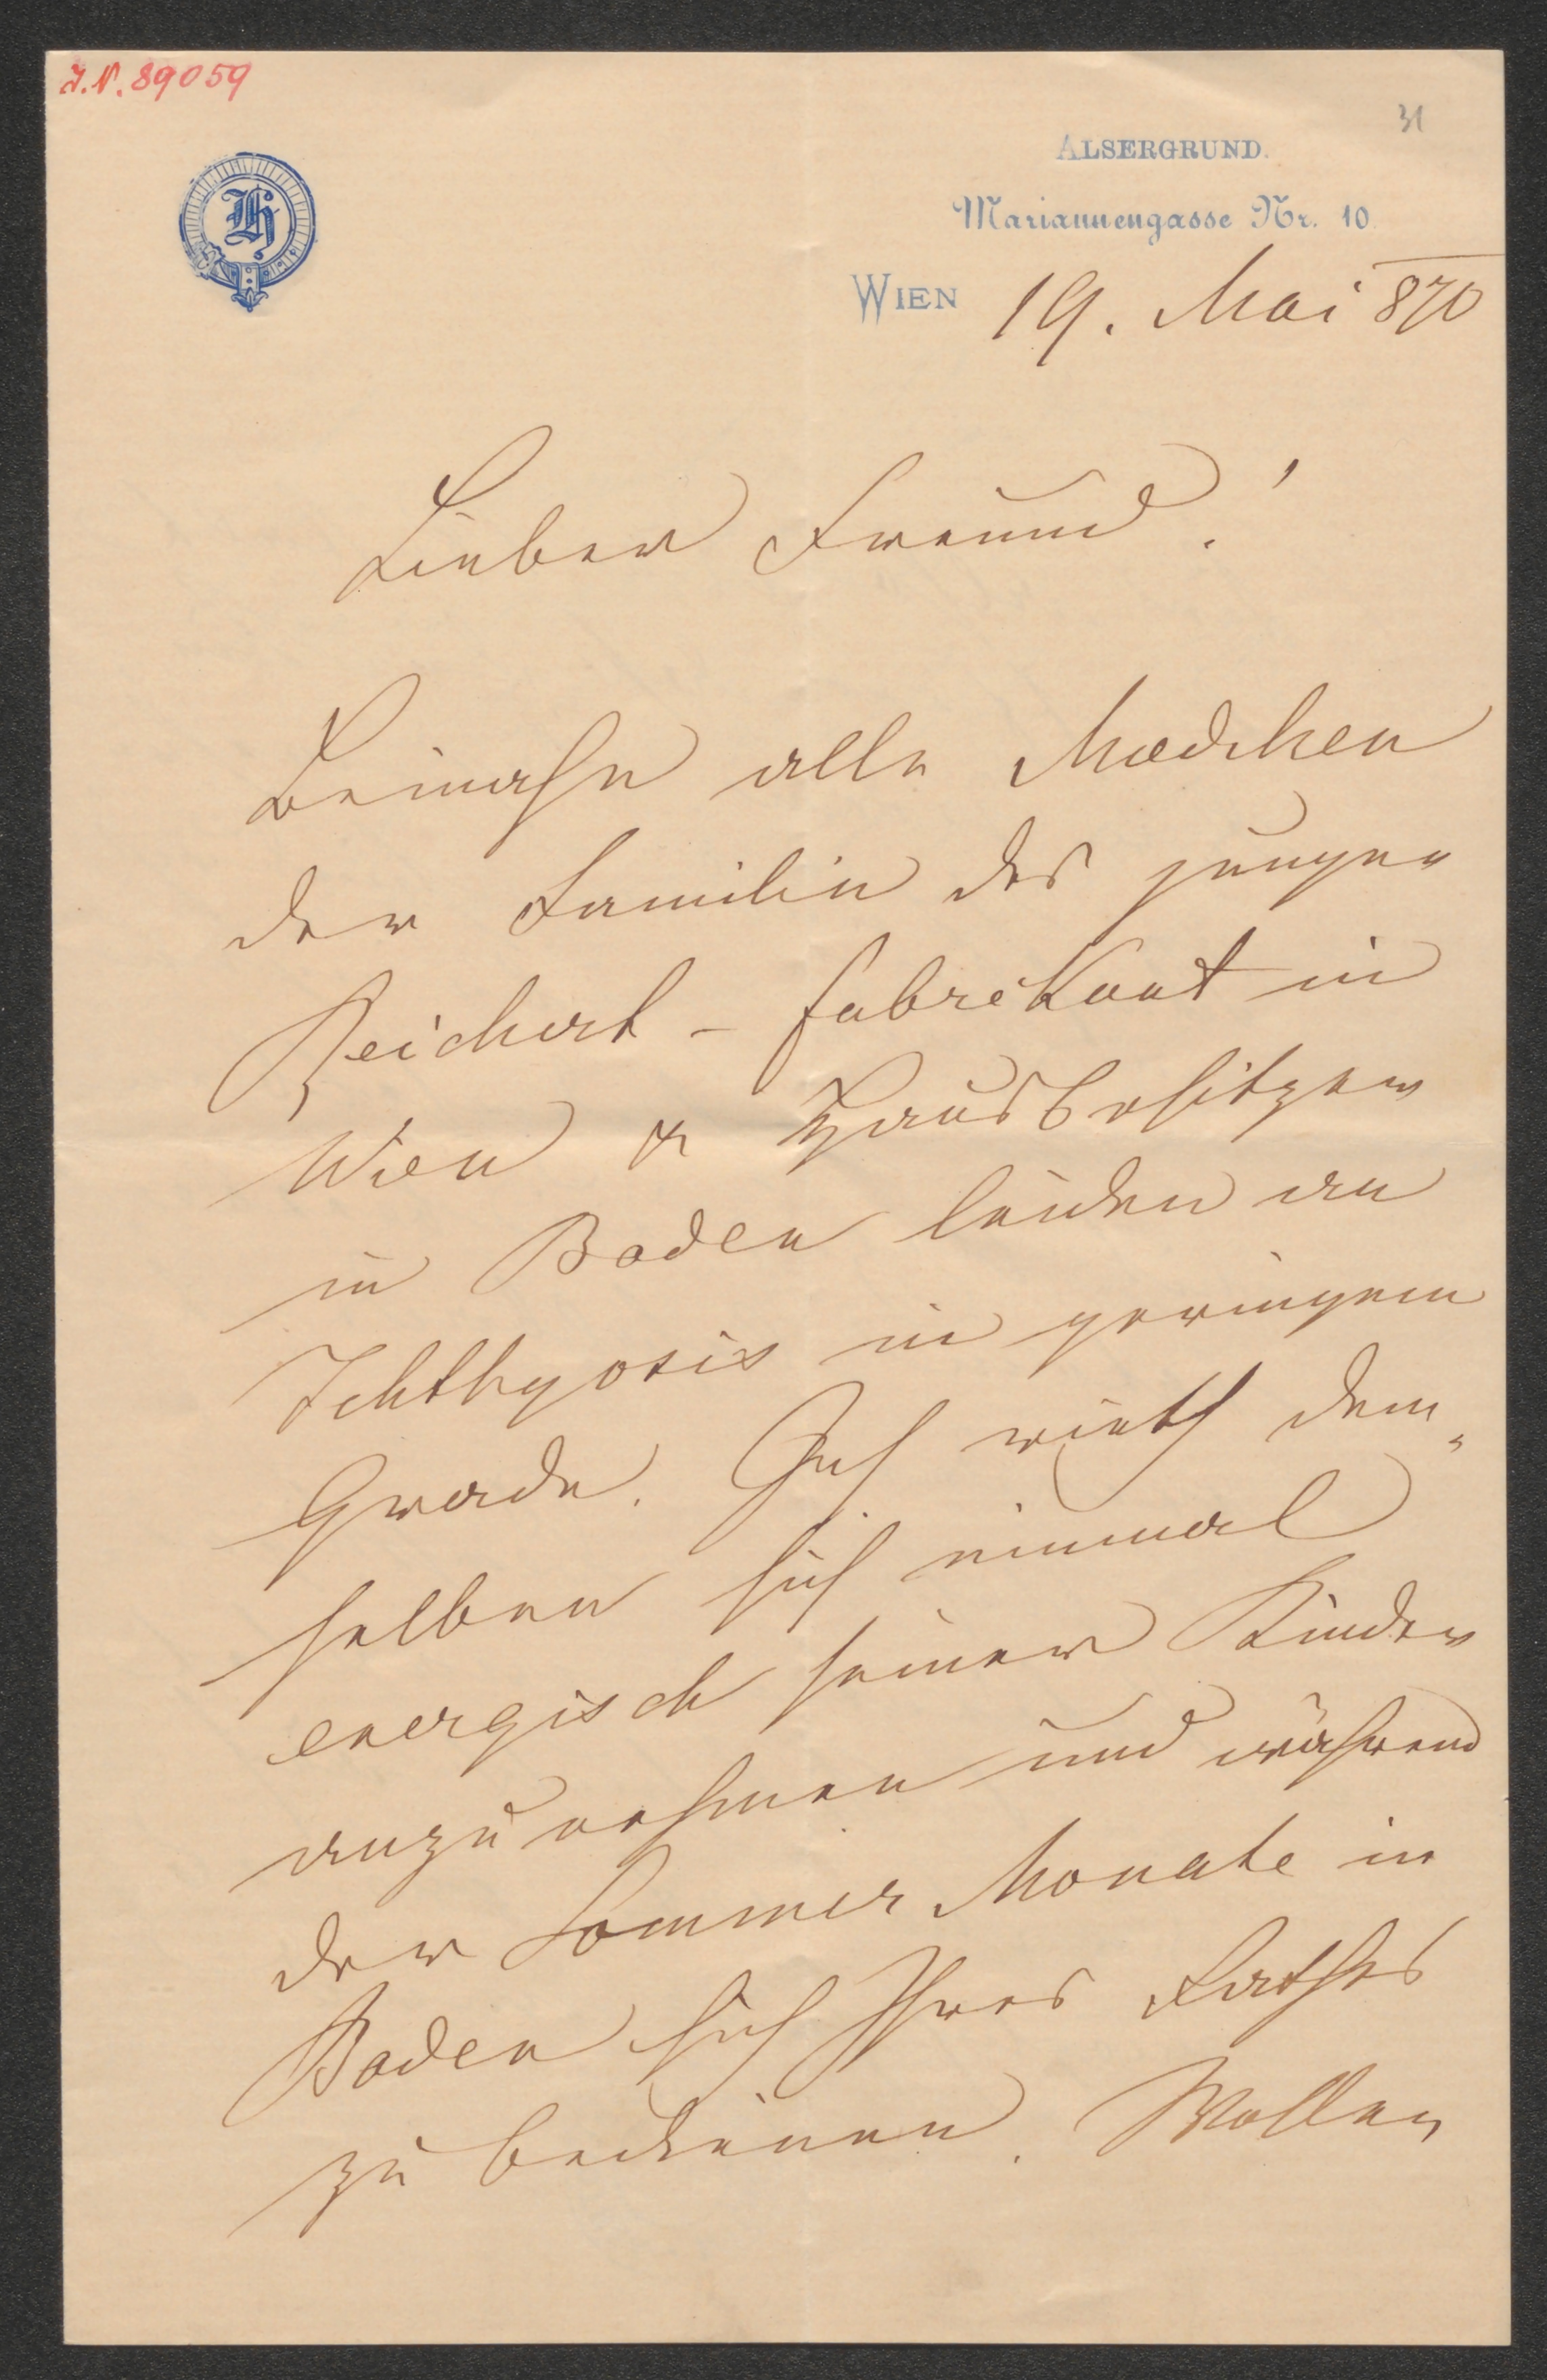 J.N. 89059
31
H
ALSERGRUND.
Mariannengasse Nr. 10
WIEN 19. Mai 870
Lieber Freund!
Beinahe alle Mædchen
der Familie des jungen
Reichert - Fabrikant in
Wien & Hausbesitzer
in Baden leiden an
Ichthyosis in geringem
Grade. Ich rieth dem-
selben sich einmal
energisch seiner Kinder
anzunehmen und während
der Sommer Monate in
Baden sich Ihres Rathes
zu bedienen. Wollen